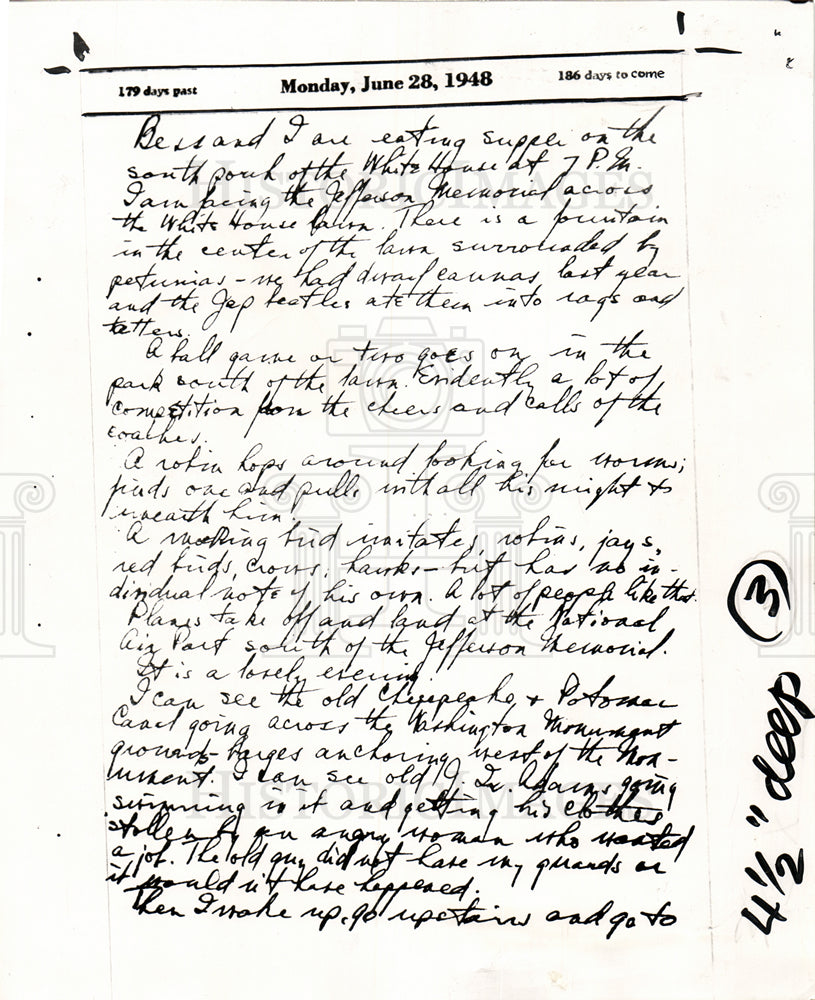 179 days past
Monday, June 28, 1948
186 days to come
Bess and I are eating supper on the
south porch of the White House at 7 P.M.
I am facing the Jefferson Memorial across
the White House lawn. There is a fountain
in the center of the lawn surrounded by
petunias - we had dwarf cannas last year
and the Jap beatles ate them into rags and
tatters.
A ball game or two goes on in the
park south of the lawn. Evidently a lot of
competition from the cheers and calls of the
coaches.
A robin hops around looking for worms;
finds one and pulls with all his might to
unearth him.
A mocking bird imitates, robins, jays,
red birds, crows, hawks - but has no in-
dividual note of his own. A lot of people like that.
Planes take off and land at the National
Air Port south of the Jefferson Memorial.
It is a lovely evening.
I can see the old Chesepeake & Potomac
Canal going across the Washington Monument
grounds - barges anchoring west of the Mon-
ument. I can see old J. Q. Adams going
swimming in it and getting his clothes
stollen by an angry woman who wanted
a job. The old guy did not have my guards or
it would n't have happened.
Then I wake up, go upstairs and go to
3
4½" deep
HISTORIC IMAGES
HISTORIC IMAGES